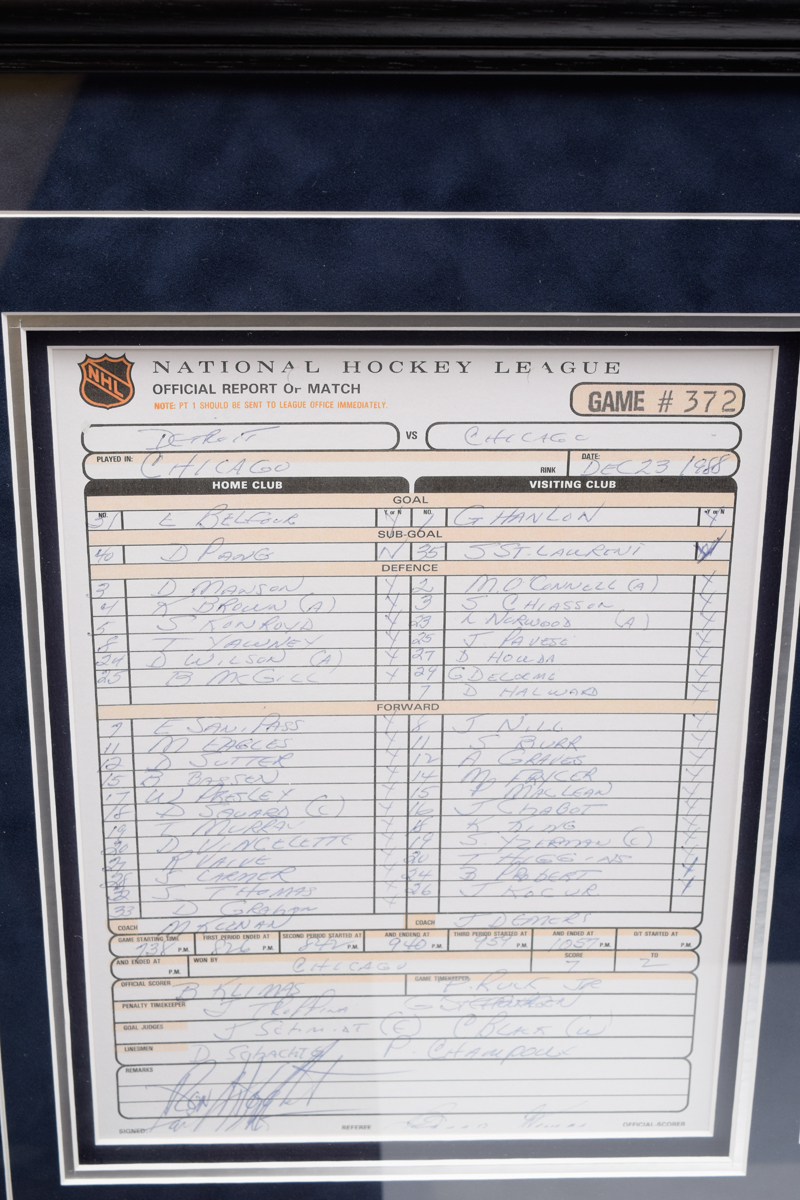 NHL
NATIONAL HOCKEY LEAGUE
OFFICIAL REPORT OF MATCH
NOTE: PT 1 SHOULD BE SENT TO LEAGUE OFFICE IMMEDIATELY.
GAME # 372
DETROIT VS CHICAGO
PLAYED IN: CHICAGO RINK DATE: DEC 23 1988
HOME CLUB VISITING CLUB
GOAL
NO. 31 E BELFOUR Y or N Y NO. 1 G HANLON Y or N Y
SUB-GOAL
40 D PANG N 35 S ST. LAURENT
DEFENCE
3 D MANSON Y 2 M. O'CONNELL (A) Y
4 K BROWN (A) Y 3 S CHIASSON Y
5 S KONROYD Y 23 L NORWOOD (A) Y
8 T YAWNEY Y 25 J PAVESE Y
24 D WILSON (A) Y 27 D HOUDA Y
25 B MCGILL Y 29 G DELORME Y
7 D HALWARD Y
FORWARD
9 E SANIPASS Y 8 J NILL Y
11 M EAGLES Y 11 S BURR Y
12 D SUTTER Y 12 A GRAVES Y
15 B BASSEN Y 14 M Y
17 W PRESLEY Y 15 P MACLEAN Y
18 D SAVARD (C) Y 16 J CHABOT Y
19 T MURRAY Y 18 K KING Y
20 D VINCELETTE Y 19 S. YZERMAN (C) Y
R VAIVE Y 20 T HIGGINS Y
28 S LARMER Y 24 B PROBERT Y
32 S THOMAS Y 26 J KOCUR Y
33 D GRAHAM
COACH M KEENAN COACH J DEMERS
GAME STARTING TIME 738 P.M. FIRST PERIOD ENDED AT 826 P.M. SECOND PERIOD STARTED AT 842 P.M. AND ENDING AT 940 P.M. THIRD PERIOD STARTED AT P.M. AND ENDED AT 1037 P.M. O/T STARTED AT P.M.
AND ENDED AT P.M. WON BY CHICAGO SCORE 7 TO 2
OFFICIAL SCORER B KLIMAS GAME TIMEKEEPER JR
PENALTY TIMEKEEPER J
GOAL JUDGES J SCHMIDT (E) C BLACK (W)
LINESMEN D SCHACHTE P CHAMPOUX
REMARKS
SIGNED REFEREE OFFICIAL SCORER